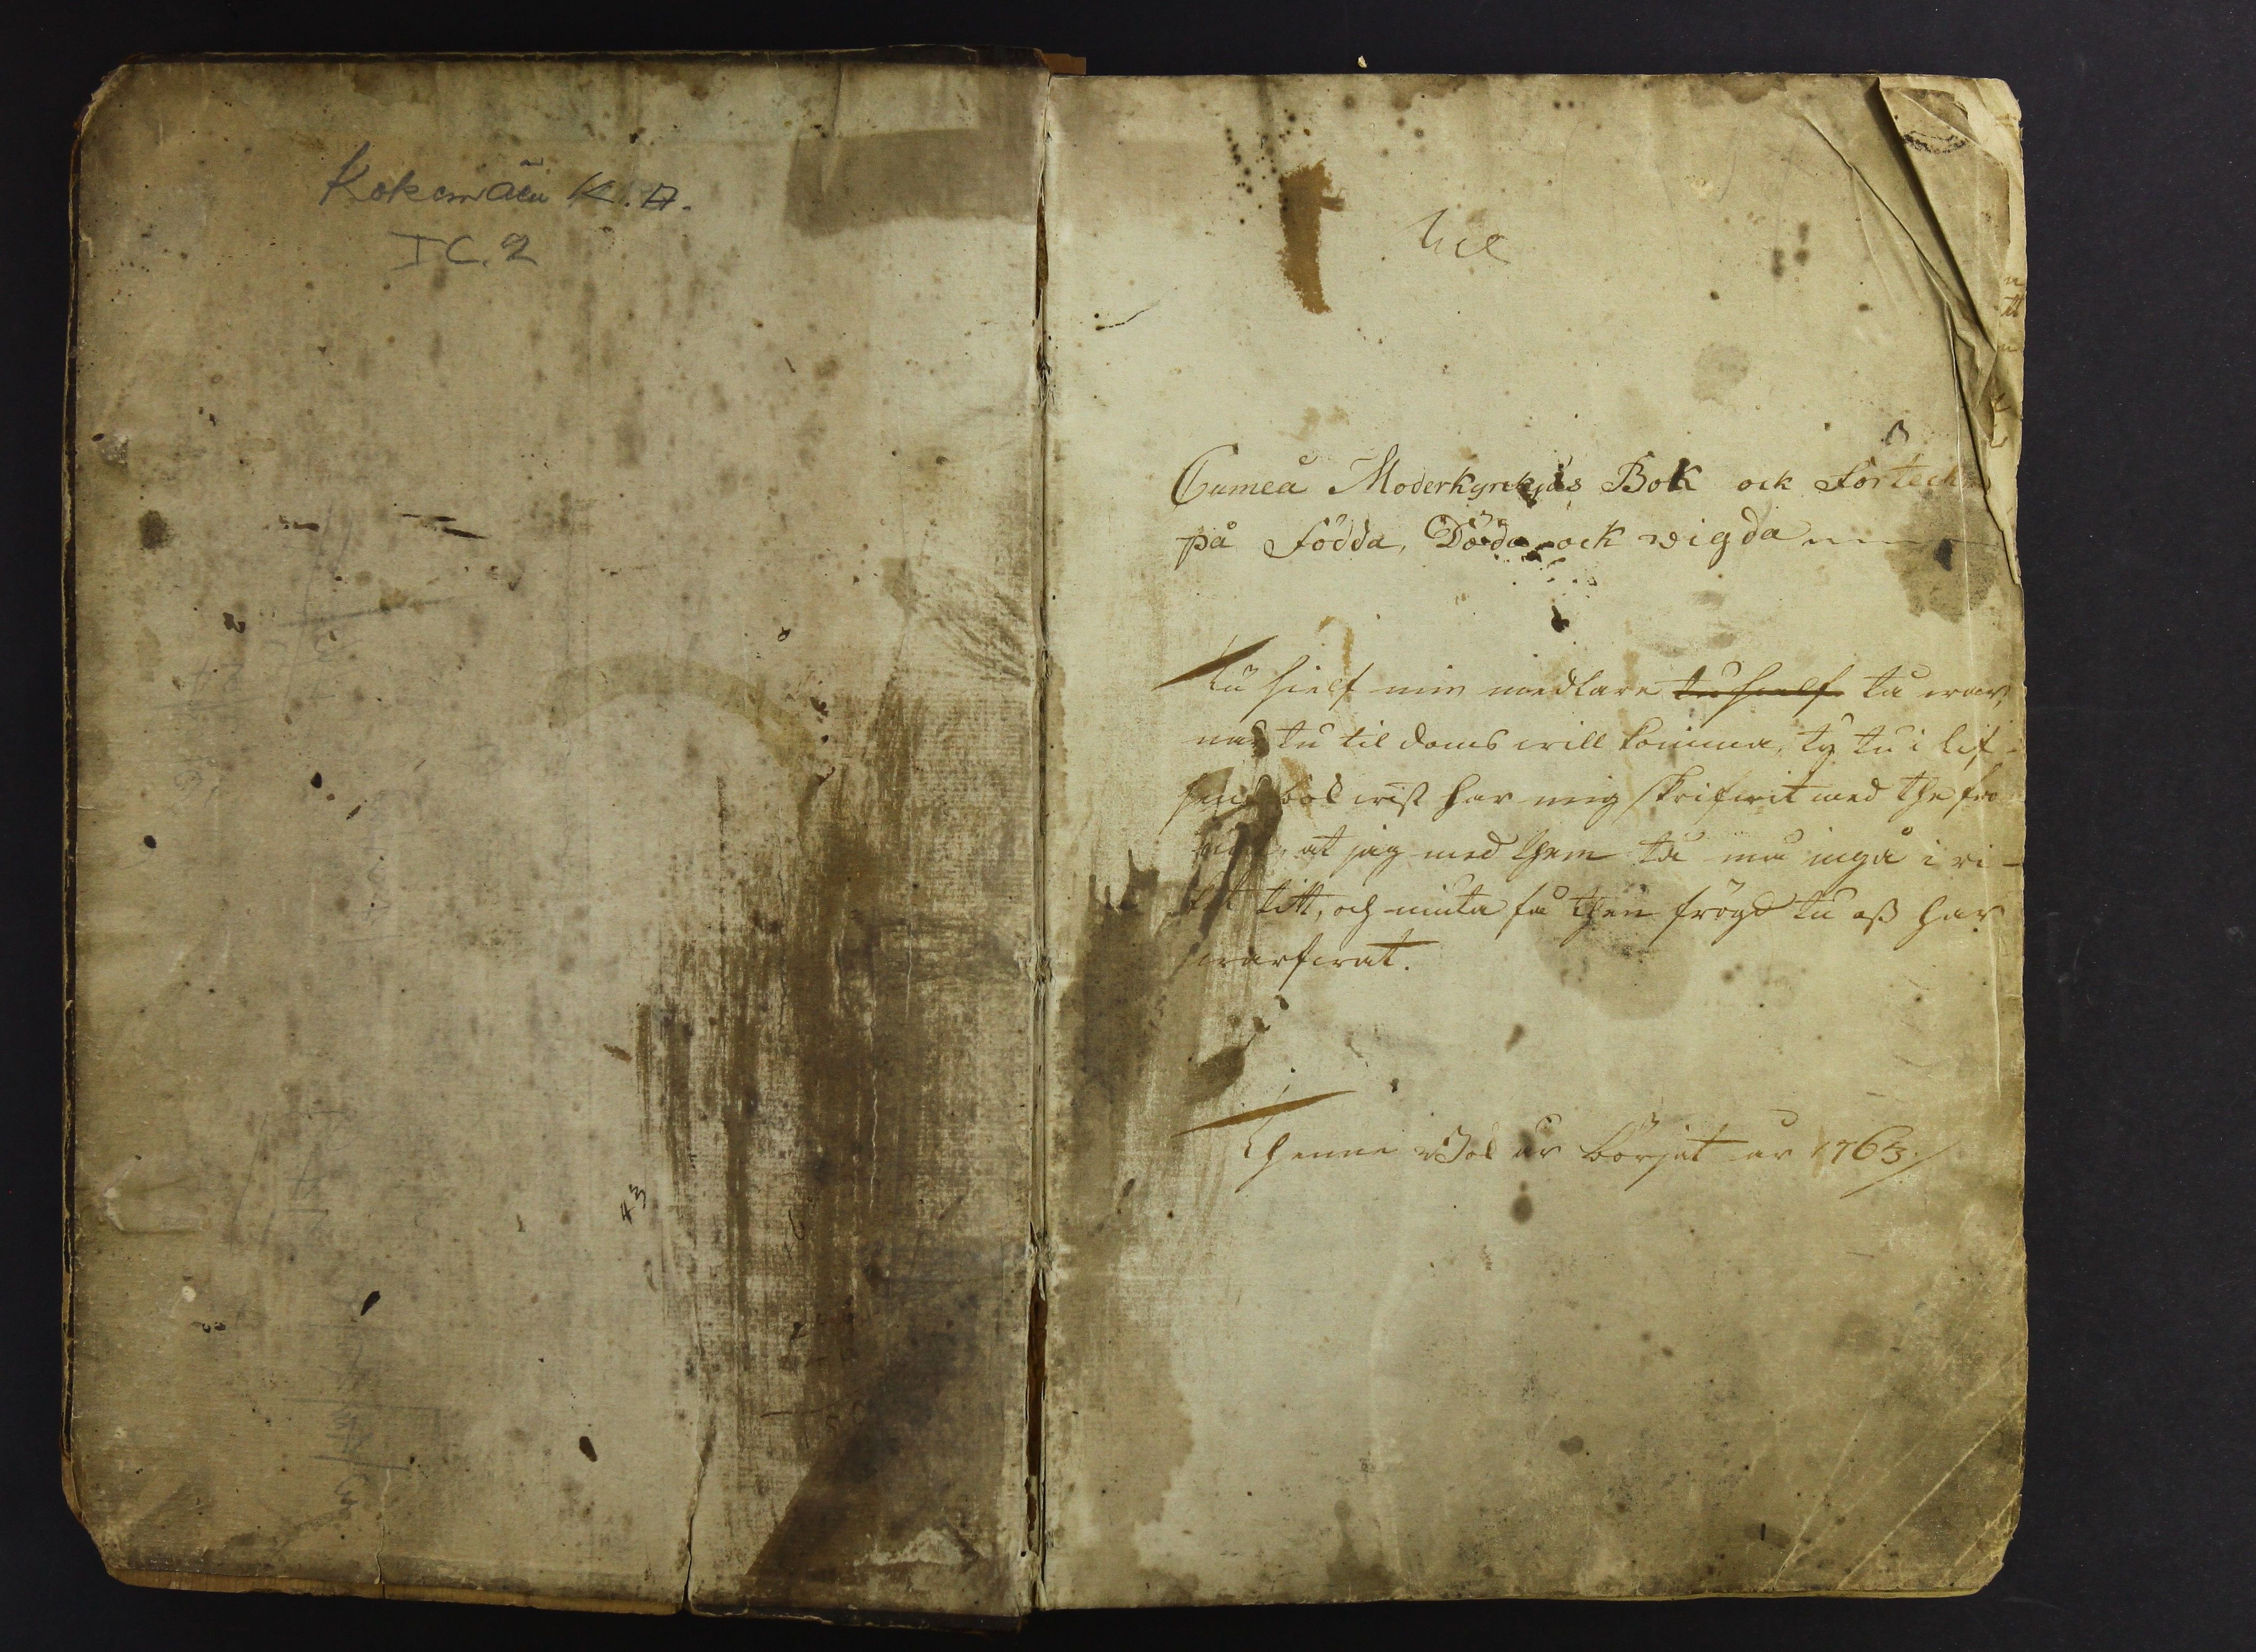 Kokemäen K.A.
I C. 2
Cumeå Moderkyrkjos Bok ock Förteckn
på Födda, Döda ock wigda
Tu sielf min medlare tu sielf tå war,
när tu til doms will komma, ty tu i lif-
sens bok wist har mig skrifwit med the fro
at jag med them tå må ingå i ri-
ket titt, och niuta få then frögd tu oss har
warfwat.
43
Thenne Bok är börjat år 1763.